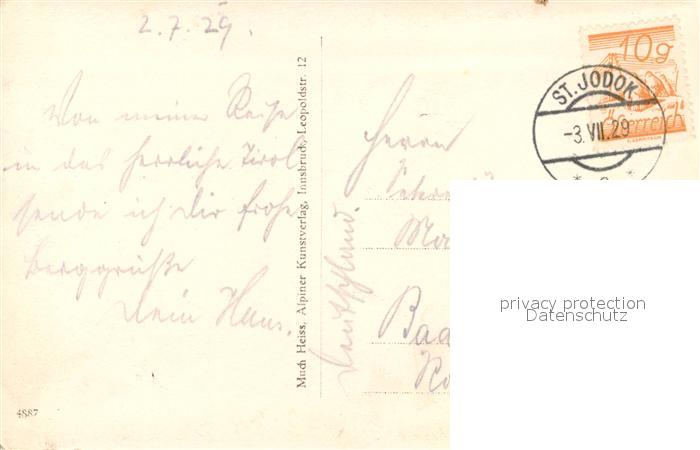 2.7.29.
Von meiner Reise
in das herrliche Tirol
sende ich Dir frohe
Berggrüße
Dein Hans.
Much Heiss, Alpiner Kunstverlag, Innsbruck, Leopoldstr. 12
4887
Herrn
Deutschland.
10g
Österreich
ST. JODOK
-3.VII.29
privacy protection
Datenschutz